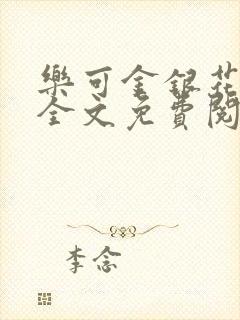 樂可金銀花
全文免費閱
李念